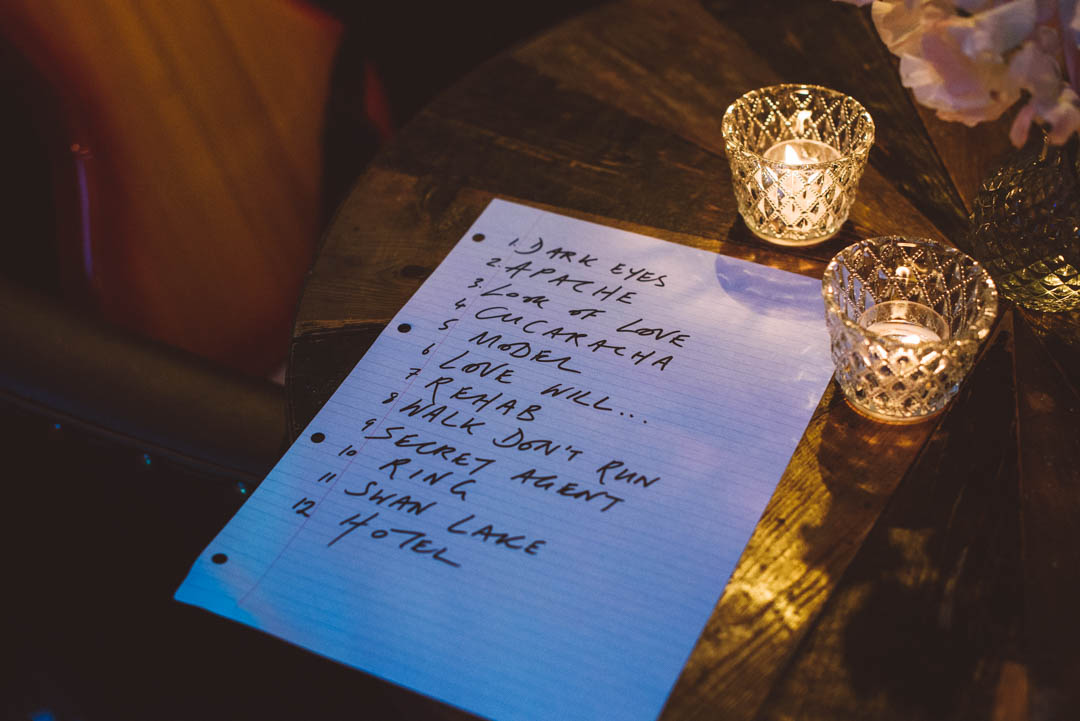 1. DARK EYES
2. APACHE
3. LOOK OF LOVE
4 CUCARACHA
5 MODEL
6 LOVE WILL...
7 REHAB
8 WALK DON'T RUN
9 SECRET AGENT
10 RING
11 SWAN LAKE
12 HOTEL